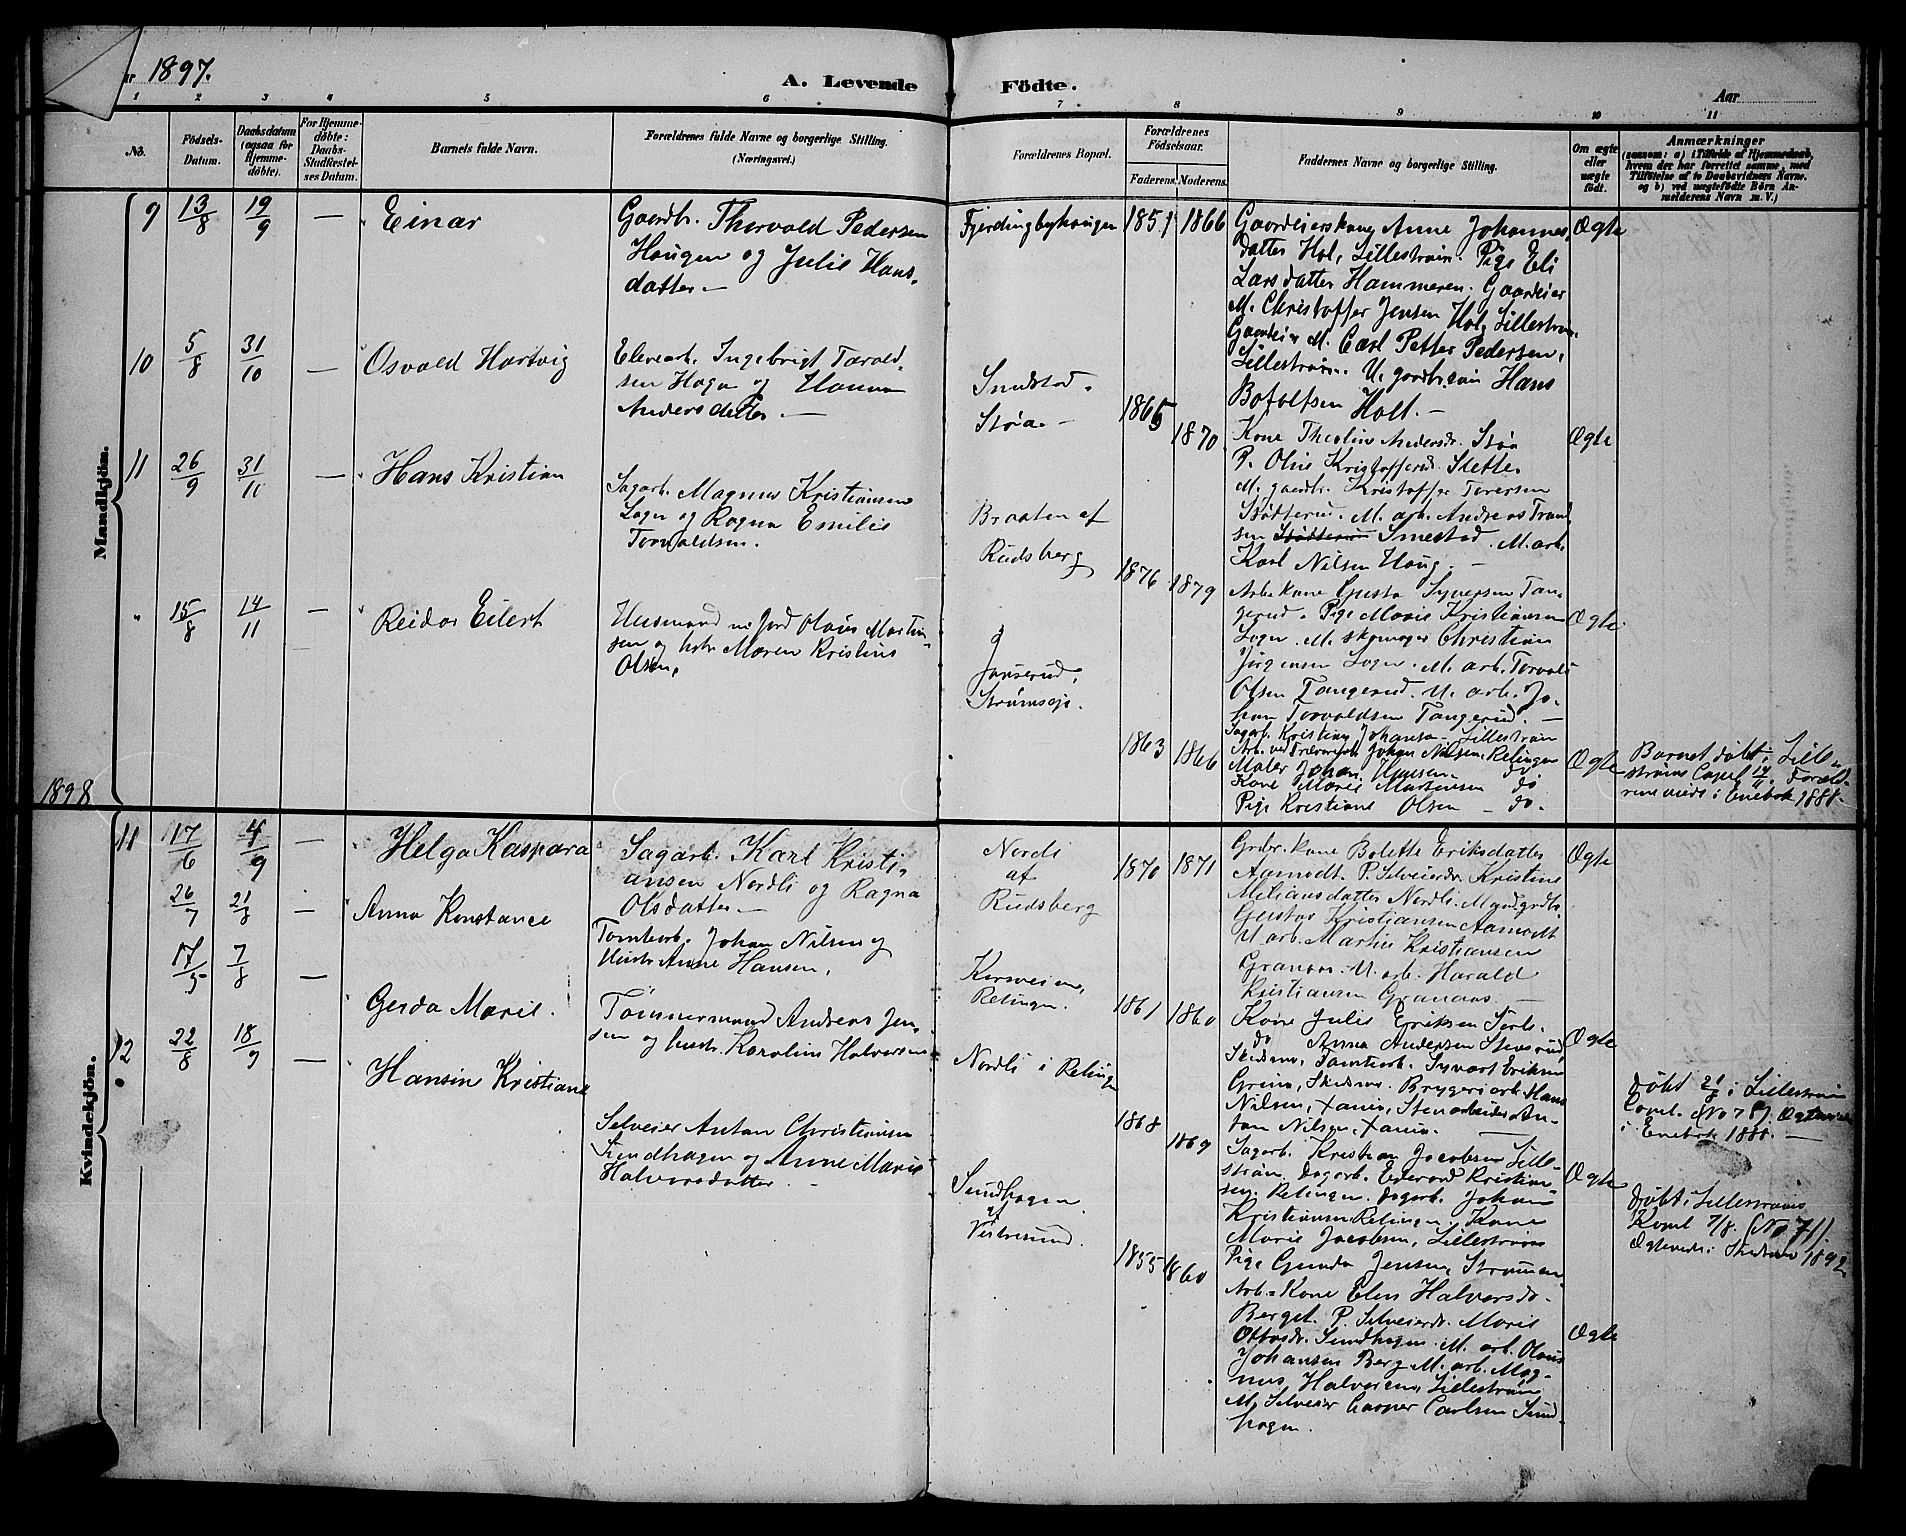 1897.
A. Levende Födte.
Aar
1 2 3 4 5 6 7 8 9 10 11
No.
Födsels-Datum.
Daabsdatum (ogsaa for Hjemme-døbte).
For Hjemme-døbte: Daabs-Stadfæstel-ses Datum.
Barnets fulde Navn.
Forældrenes fulde Navne og borgerlige Stilling. (Næringsvei.)
Forældrenes Bopæl.
Forældrenes Födselsaar.
Faderens. Moderens.
Faddernes Navne og borgerlige Stilling.
Om ægte eller uægte født.
Anmærkninger
(saasom: a) i Tilfælde af Hjemmedaab, hvem der har forrettet samme, med Tilføielse af to Daabsvidners Navne. og b) ved uægtefødte Børn An-melderens Navn m. V.)
Mandkjön.
9 13/8 19/9 — Einar
Gaardbr. Thorvald Pedersen
Haugen og Julie Hans
datter.—
Fjerdingbyhaugen 1851 1866
Gaardeierskone Anne Johannes
datter Hol, Lillestrøm. Pige Eli
Larsdatter Hammeren. Gaardeier
M. Christoffer Jensen Hol, Lillestrøm.
Gaardeier M. Carl Petter Pedersen,
Lillestrøm. U. gaardbr.søn Hans
Bofolfsen Holt.—
Ægte
10 5/8 31/10 — Osvald Hartvig
Elevearb. Ingebrigt Torvald-
sen Haga og Hanna
Andersdatter.—
Smestad.
Støa— 1865 1870
Kone Theoline Andersdr. Støa
P. Oline Kristofferud. Slette.
M. gaardbr. Kristoffer Toversen
Stødterud. M. arb. Andreas Trand
sen Stødterud Smestad. M. arb.
Karl Nilsen Haug.—
Ægte
11 26/9 31/10 — Hans Kristian
Sagarb. Magnus Kristiansen
Loger og Ragna Emilie
Torvaldsen.
Braaten af
Rudsberg 1876 1879
Arb.kone Gusta Syversen Tan-
gerud. Pige Marie Kristiansen
Loger. M. skomager Christian
Jörgensen Loger. M. arb. Torvald
Olsen Tangerud. U. arb. Jo-
han Torvaldsen Tangerud.—
Ægte
" 15/8 14/11 — Reidar Eilert
Husmand m. jord Olaus Martin-
sen og hstr. Maren Kristine
Olsen,
Strømseje. 1863 1866
Sagarb. Kristian Johansen Lillestrøm
Johan Nilsen. Relingen
Maler Johan Hansen do
Kone Marie Martinsen do
Pige Kristiane Olsen — do.
Ægte
Barnet döbt i Lille-
strøms Capel 14/11. Foræld-
rene viede i Enebak 1888.
1898
Kvindekjön.
11 17/6 4/9 — Helga Kaspara
Sagarb. Karl Kristi-
ansen Nordli og Ragna
Olsdatter.—
Nordli
af
Rudsberg 1870 1871
Grdbr.kone Bolette Eriksdatter
Aamodt. P. Selveierdr. Kristine
Miliansdatter Nordli. M. gdbr.
Gustav Kristiansen Aamodt
U. arb. Martin Kristiansen
Granaas. U. arb. Harald
Kristiansen Granaas.—
Ægte
26/7 21/8 — Anna Konstance
Tomtearb. Johan Nilsen og
Hustr. Anne Hansen,
Korsveien,
Relingen. 1861 1860
Kone Julie Eriksen
do Anna Andersen Stensrud
Skedsmo, Tomtearb. Syvart Eriksen
Grini, Skedsmo. Bryggeriarb. Hans
Nilsen, Xania, Stenarbeider An-
ton Nilsen, Xania.
Ægte
Døbt 21/8 i Lillestrøm
Capel. (No 75). Ægteviede
i Enebak 1888.—
17/5 7/8 — Gerda Marie.
Tømmermand Andreas Jen-
sen og hustr. Karoline Halvorsen
Nordli i Relingen 1868 1869
Sagarb. Kristian Jacobsen Lille-
strøm, Sagarb. Edvard Kristian-
sen Relingen. Sagarb. Johan
Kristiansen Relingen, Kone
Marie Jacobsen, Lillestrøm
Pige Gunda Jensen, Strømmen
Ægte
Døbt i Lillestrøms
Kapel 7/8. (No 71).
Ægteviede i Skedsmo 1892
12 22/8 18/9 — Hansin Kristiane
Selveier Anton Christiansen
Sundhagen og Anne Marie
Halvorsdatter.—
Sundhagen
af
Vestresund. 1855 1860
Arb.Kone Elen Halvorsdr.
Berget. P. Selveierdr. Marie
Ottosdr. Sundhagen. M. arb. Olaus
Johansen Berg. M. arb. Mag-
nus Halvorsen, Lillestrøm
M. Selveier Casper Carlsen Sund
hagen.
Ægte